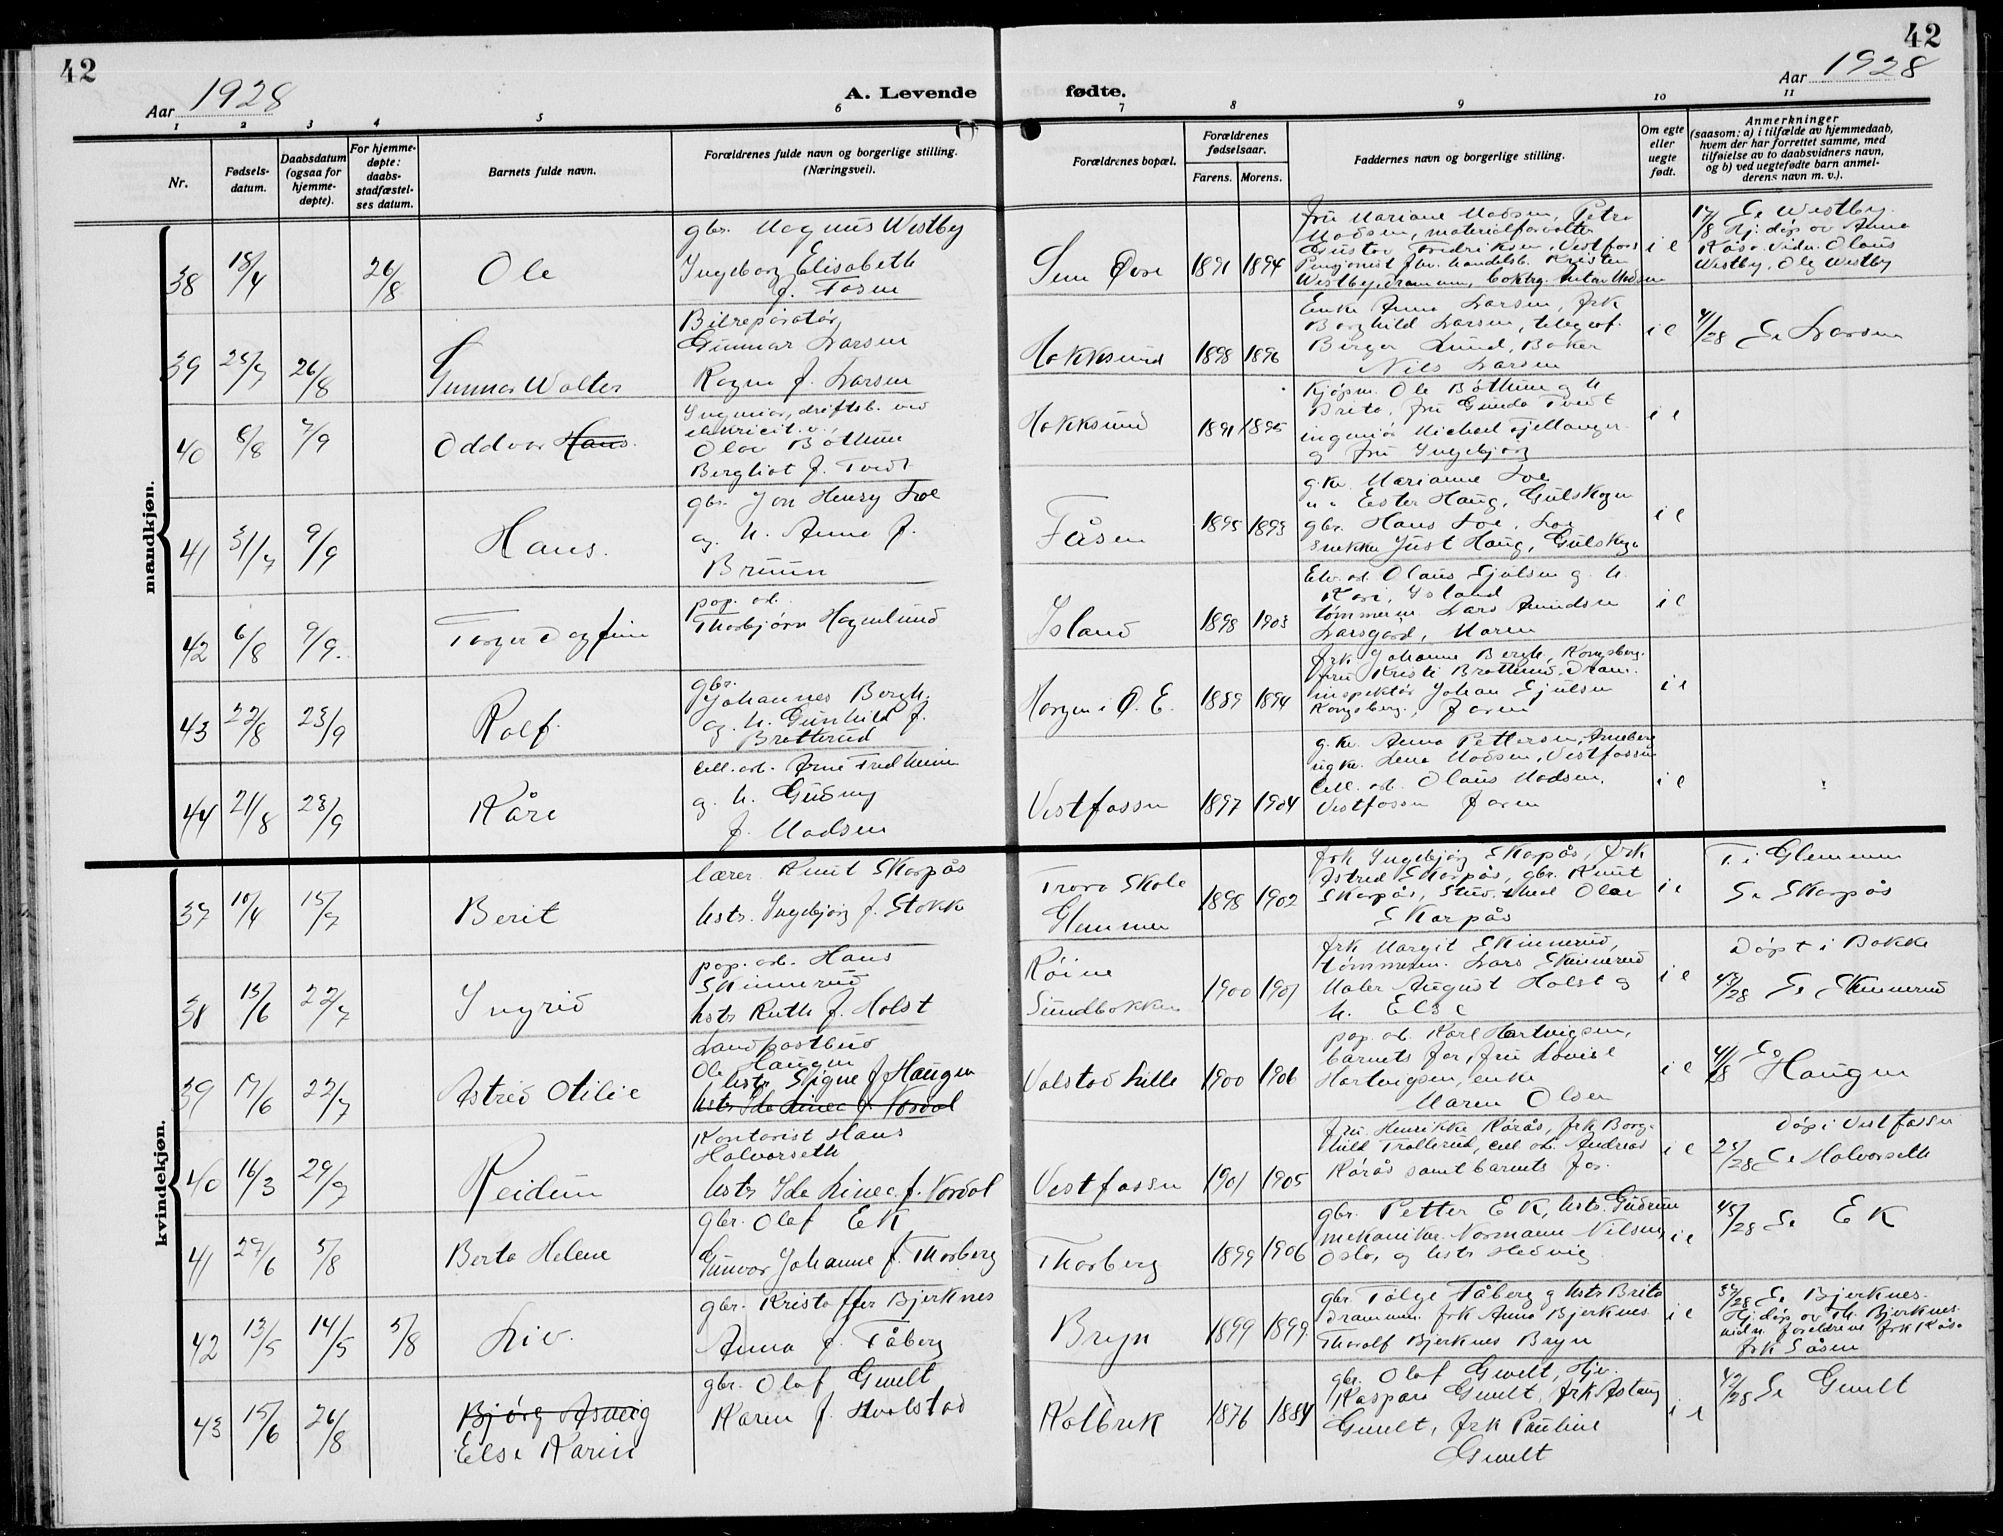 42
42
Aar 1928
A. Levende
fødte.
Aar 1928
1 2 3 4 5 6 7 8 9 10 11
Nr.
Fødsels-
datum.
Daabsdatum
(ogsaa for
hjemme-
døpte).
For hjemme-
døpte:
daabs-
stadfæstel-
ses datum.
Barnets fulde navn.
Forældrenes fulde navn og borgerlige stilling.
(Næringsvei).
Forældrenes bopæl.
Forældrenes
fødselsaar.
Farens. Morens.
Faddernes navn og borgerlige stilling.
Om egte
eller
uegte
født.
Anmerkninger
(saasom: a) i tilfælde av hjemmedaab,
hvem der har forrettet samme, med
tilføielse av to daabsvidners navn,
og b) ved uegtefødte barn anmel-
derens navn m. v.).
mandkjøn.
38 18/4 26/8 Ole
gbr. Magnus Westby
Ingeborg Elisabeth
f. Fosen
Sem Øvre 1891 1894
fru Mariane Madsen, Petra
Madsen, materialforvalter
Gustav Fredriksen, Vestfoss
Westby, Drammen,
i e
17/8 Se Westby
Hj. døp av Anna
Røsa. Vidn. Olaus
Westby, Ole Westby
39 25/7 26/8 Gunnar Walter
Bilreparatør
Gunnar Larsen
Ragna f. Larsen
Hokksund 1898 1896
Enke Anna Larsen, frk
Borghild Larsen, telegraf.
Berger Lund, Baker
Nils Larsen
i e
41/28 Se Larsen
40 8/8 2/9 Oddvar Hans
Ingeniør, driftsb. ved
elektricit. v.
Olav Bøthun
Bergliot f. Tvedt
Hokksund 1891 1895
Kjøpm. Ole Bøthun og h.
Brita, fru Gunda Tvedt
ingeniør Michael Fjellanger
og fru Ingebjørg
i e
41 31/7 9/9 Hans.
gbr. Jon Henry Loe
og h. Anna f.
Bruun
Fåsen 1895 1893
g.kv. Marianne Loe
" " Ester Haug, Gulskogen
gbr. Hans Loe, Loe
snekker Just Haug, Gulskogen
i e
42 6/8 9/9. Torger Dagfinn
pap. arb.
Thorbjørn Hagenlund
Island 1898 1903
Elv. arb. Olaus Gjulsen og h.
Kari, Island
tømmerm. Lars Amundsen
Larsgard, Maren
i e
43 22/8 23/9 Rolf.
gbr.
Johannes Bergh.
og h. Gunhild f.
Bratterud
Horgen i Ø. E. 1889 1894
frk Johanne Bergh, Kongsberg.
fru Kristi Bratterud, Dram.
inspektør Johan Gjulsen
Kongsberg, faren
i e
44 21/8 23/9 Kåre
Cell. arb. Arne Fredheim
og h. Gudny
f. Madsen
Vestfossen 1897 1904
g. kv. Anna Pettersen, Arneberg
ug. kv. Lena Madsen, Vestfossen
Cell. arb. Olaus Madsen,
Vestfossen faren
i e
kvindekjøn.
37 10/4 15/7 Berit
lærer Knut Skarpås
hstr. Ingebjørg f. Stokke
Trara Skole
Glemmen
1898 1902
frk Ingebjørg Skarpås, frk
Astrid Skarpås, gbr. Knut
Skarpås, Stud. med Olav
Skarpås
i e
F. i Glemmen
Se Skarpås
38 13/6 22/7 Ingrid
pap. arb. Hans
Skinnerud
hstr Ruth f. Holst
Røine
Sundbakken
1900 1901
frk Margit Skinnerud,
tømmerm. Lars Skinnerud
Maler August Holst og
h. Else
i e
Døpt i Bakke
43/28 Se Skinnerud
39 17/6 22/7 Astrid Otilie
Landpostbud
Ole Haugen
hstr Signe f Haugen
hstr Ida Linea f. Nordal
Valstad Lille 1900 1906
pap. arb. Karl Hartvigsen,
barnets far, fru Lovise
Hartvigsen, enke
Maren Olsen
i e
41/28 Se
Haugen
40 16/3 29/7 Reidun
Kontorist Hans
Halvorseth
hstr Ida Linea f. Nordal
Vestfossen 1901 1905
fru Henrikke Rørås, frk Borg-
hild Trollerud, cell. arb. Andreas
Rørås samt barnets far.
i e
Døp i Vestfossen
25/28 Se Halvorseth
41 27/6 5/8 Berta Helene
gbr. Olaf Ek
Gunvor Johanne f. Thorberg
Thorberg 1899 1906
gbr. Petter Ek, hstr. Gudrun
mekaniker Normann Nilsen,
Oslo, og hstr Hedvig
i e
45/28 Se Ek
42 13/5 14/5 5/8 Liv.
gbr. Kristoffer Bjerknes
Anna f. Fåberg
Bryn 1899 1899.
gbr. Tølge Fåberg og hstr Brita
Drammen. frk Anna Bjerknes
Thoralf Bjerknes Bryn
i e
37/28 Se Bjerknes.
Hj. døp av Th. Bjerknes.
vidn. foreldrene frk Røsa
frk Såsen
43 15/6 26/8 Bjørg Asveig
Else Karin
gbr. Olaf Gunelt
Karen f. Hvalstad
Kolbrek 1876 1884
gbr. Olaf Gunelt, Hjv.
Kaspara Gunelt, frk Astang
Gunelt, frk Pauline
Gunelt
i e
42/28 Se Gunelt